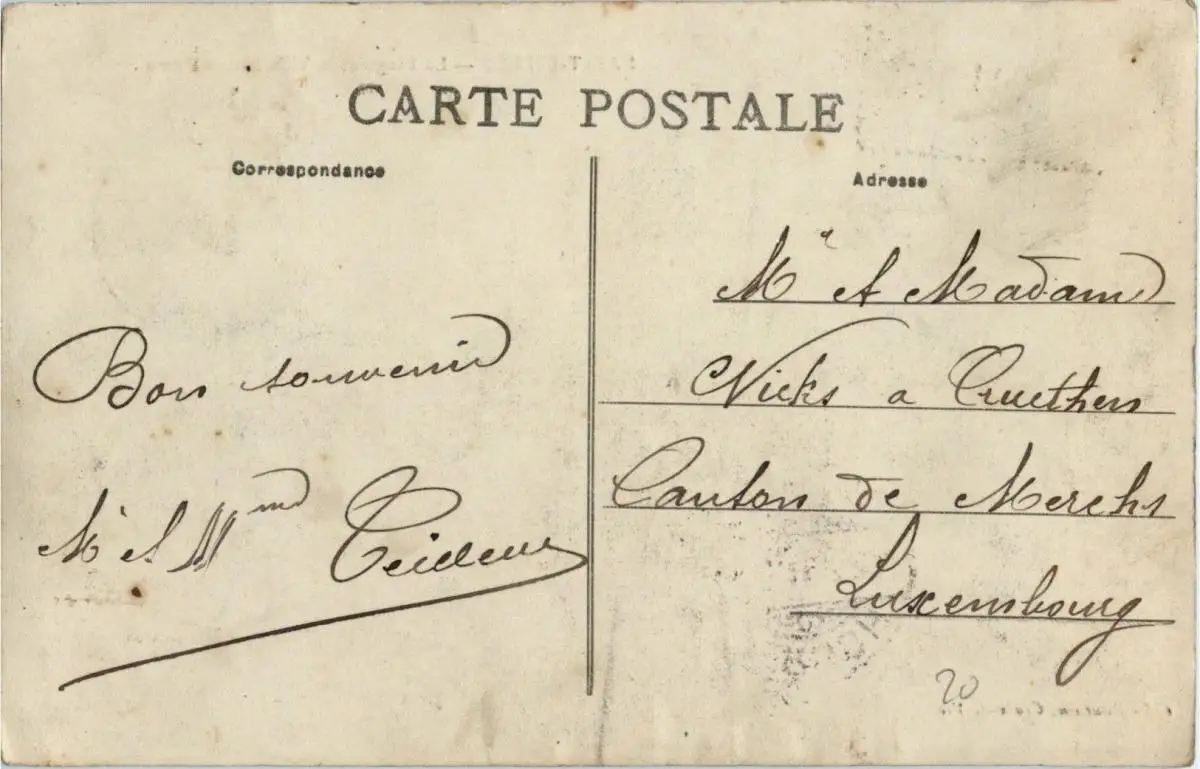 CARTE POSTALE
Correspondance
Adresse
Bon souvenir
Mr et Mme
Mr et Madame
Nicks a Cruchten
Canton de Mersch
Luxembourg
20